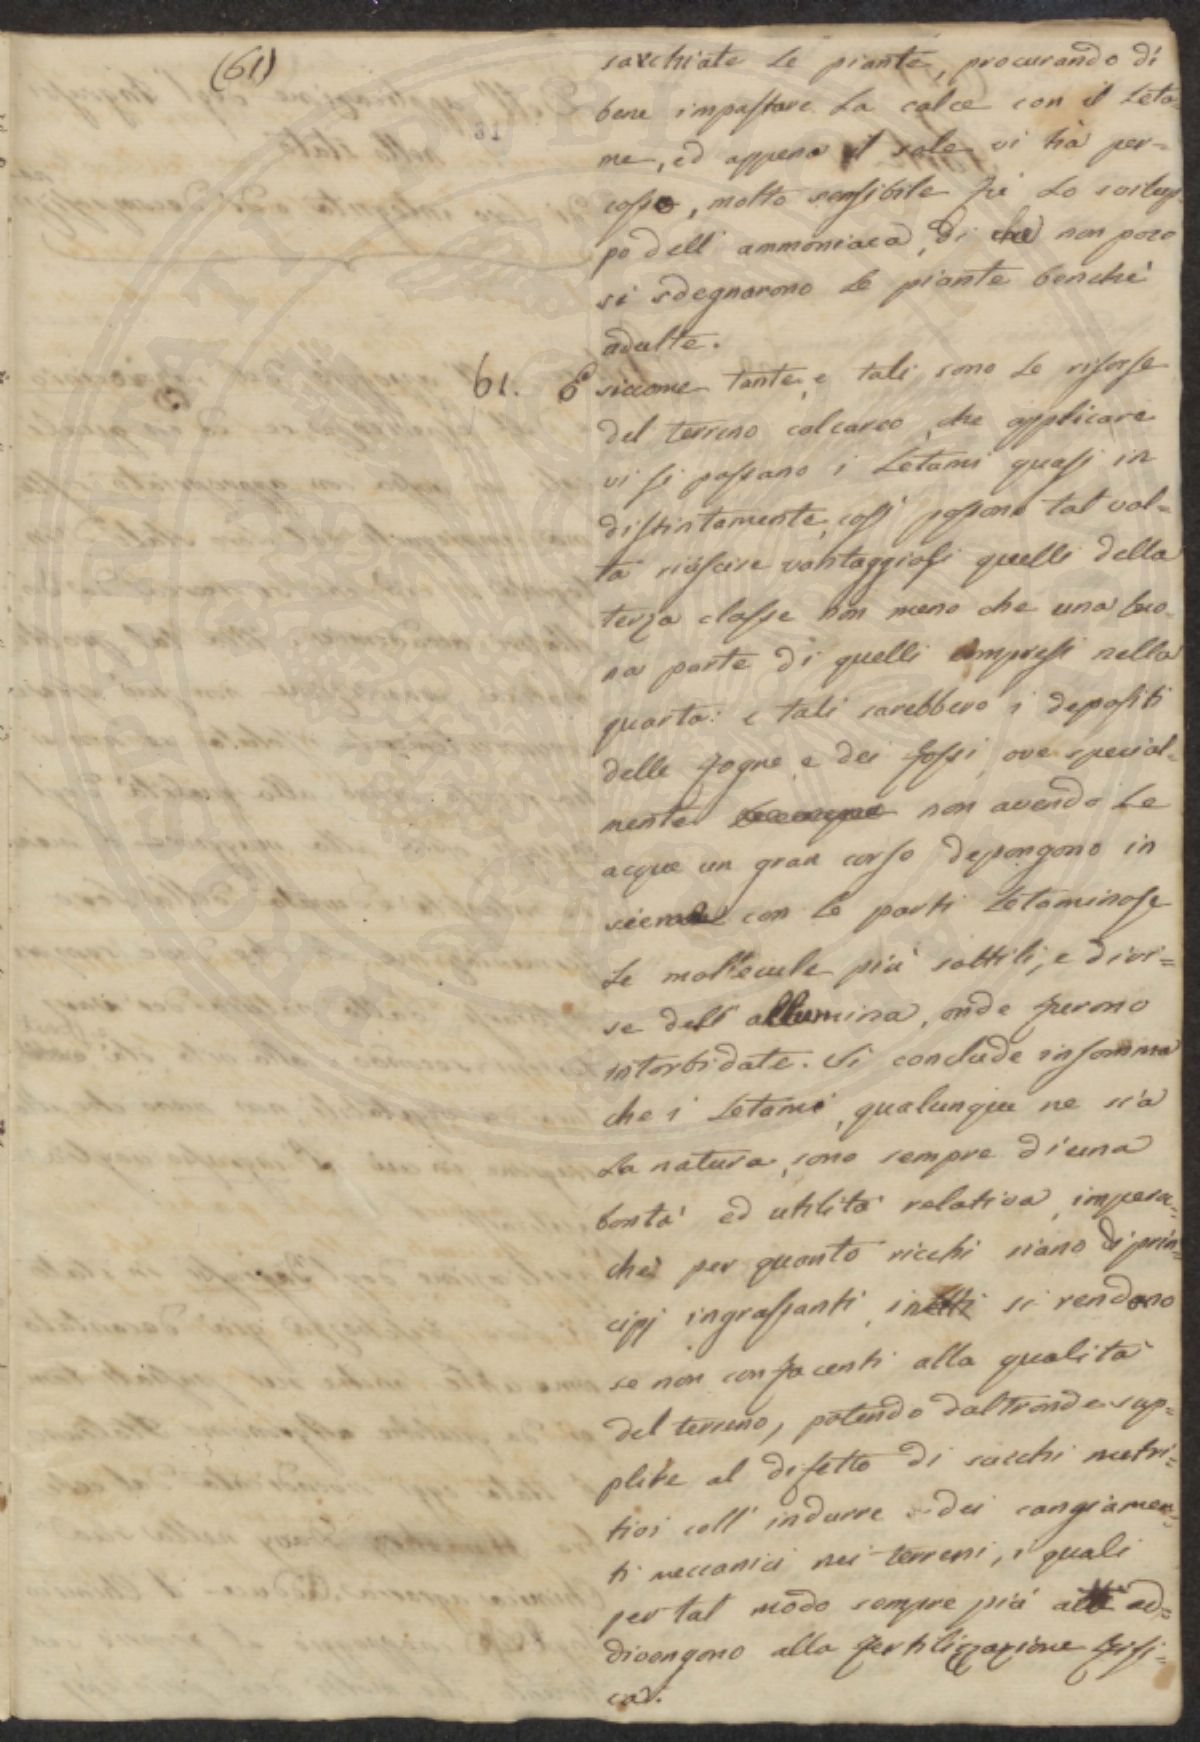 (61)
31
sarchiate le piante, procurando di
bene impastare la calce con il leta-
me, ed appena il sole vi hà per=
cosso, molto sensibile fù lo svilup-
po dell' ammoniaca, di che non poco
si sdegnarono le piante benchè
adulte.
61. E siccome tante, e tali sono le risorse
del terreno calcareo, che applicare
vi si possano i letami quasi in
distintamente, così possono tal vol=
ta riuscire vantaggiosi quelli della
terza classe non meno che una buo-
na parte di quelli compresi nella
quarta: e tali sarebbero i depositi
delle fogne e dei fossi, ove special-
mente non avendo le
acque un gran corso depongono in
sieme con le parti letaminose
le molecule più sottili, e divi=
se dell' allumina, onde furono
intorbidate. Si conclude insomma
che i letami, qualunque ne sia
la natura, sono sempre di una
bontà ed utilità relativa, impera-
chè per quanto ricchi siano di prin-
cipj ingrassanti, inetti si rendono
se non confacenti alla qualità
del terreno, potendo daltronde sup-
plire al difetto di succhi nutri-
tivi coll' indurre dei cangiamen-
ti meccanici nei terreni, i quali
per tal modo sempre più atti ad=
divengono alla fertilizzazione fisi=
ca.